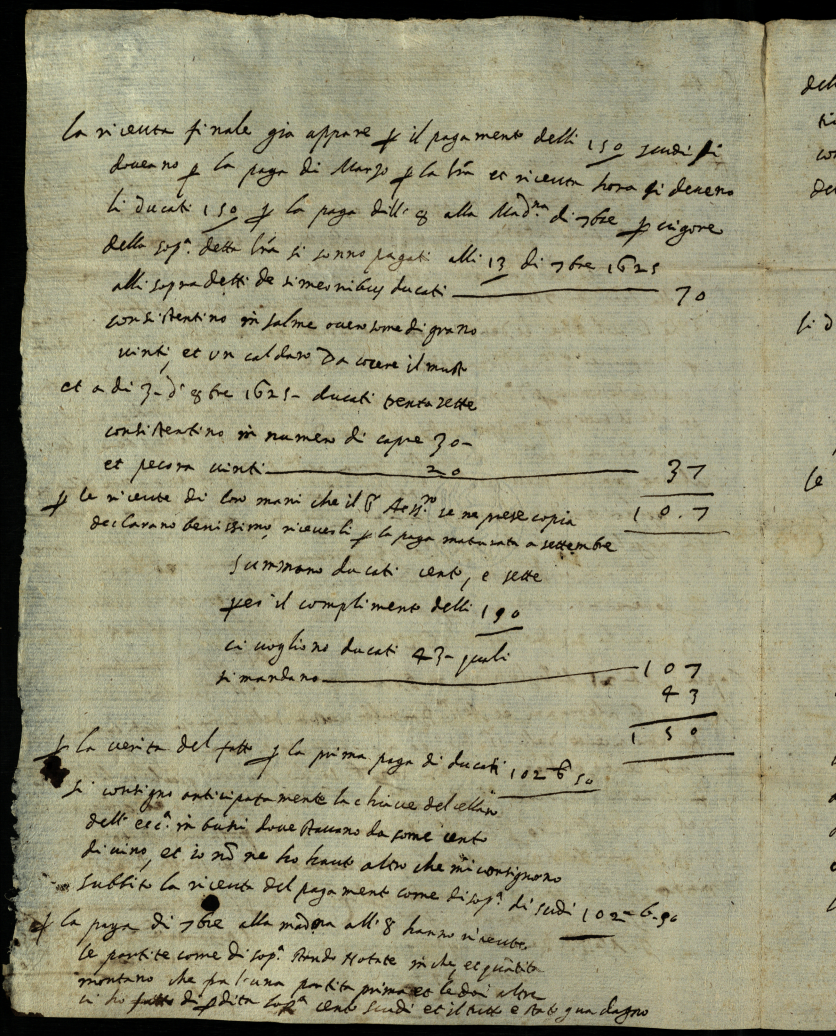 la riceuta finale gia appare ꝑ il pagamento delli 150 scudi si
doveano ꝑ la paga di Marzo ꝑ la lra et riceuta hora si deveno
li ducati 150 ꝑ la paga dell' 8 alla Mad.na di 7bre ꝑ vigore
della sop.a detta lra si sonno pagati alli 13 di 7bre 1625
alli sopradetti de simeonibus ducati 70
consistentino in salme overo some di grano
vinti, et un caldaro da cocere il musto
et a di 3 d' 8bre 1625 ducati trenta sette
consistentino in numero di capre 30
et pecora vinti 20 37
ꝑ le riceute di loro mani che il se ne prese copia 107
declarano benissimo, ricevesti ꝑ la paga maturata a settembre
summano ducati cento, e sette
ꝑ il complimento delli 150
ci vogliono ducati 43 quali
si mandano 107
43
150
ꝑ la verita del fatto ꝑ la prima paga di ducati 102 6 50
si consigno anticipatamente la chiave del cellaro
dell' ecc.a in busi dove stavano da some cento
di vino, et io nō ne ho hauto altro che mi consignono
subbito la riceuta del pagamento come di sop.a di scudi 102 6 50
ꝑ la paga di 7bre alla madōna all' 8 hanno riceute
le partite come di sop.a stando notate in che, et quātita
montano che fra l'una partita prima et le doi altre
ci ho di ꝑdita cento scudi et il tutto e stato guadagno
dell